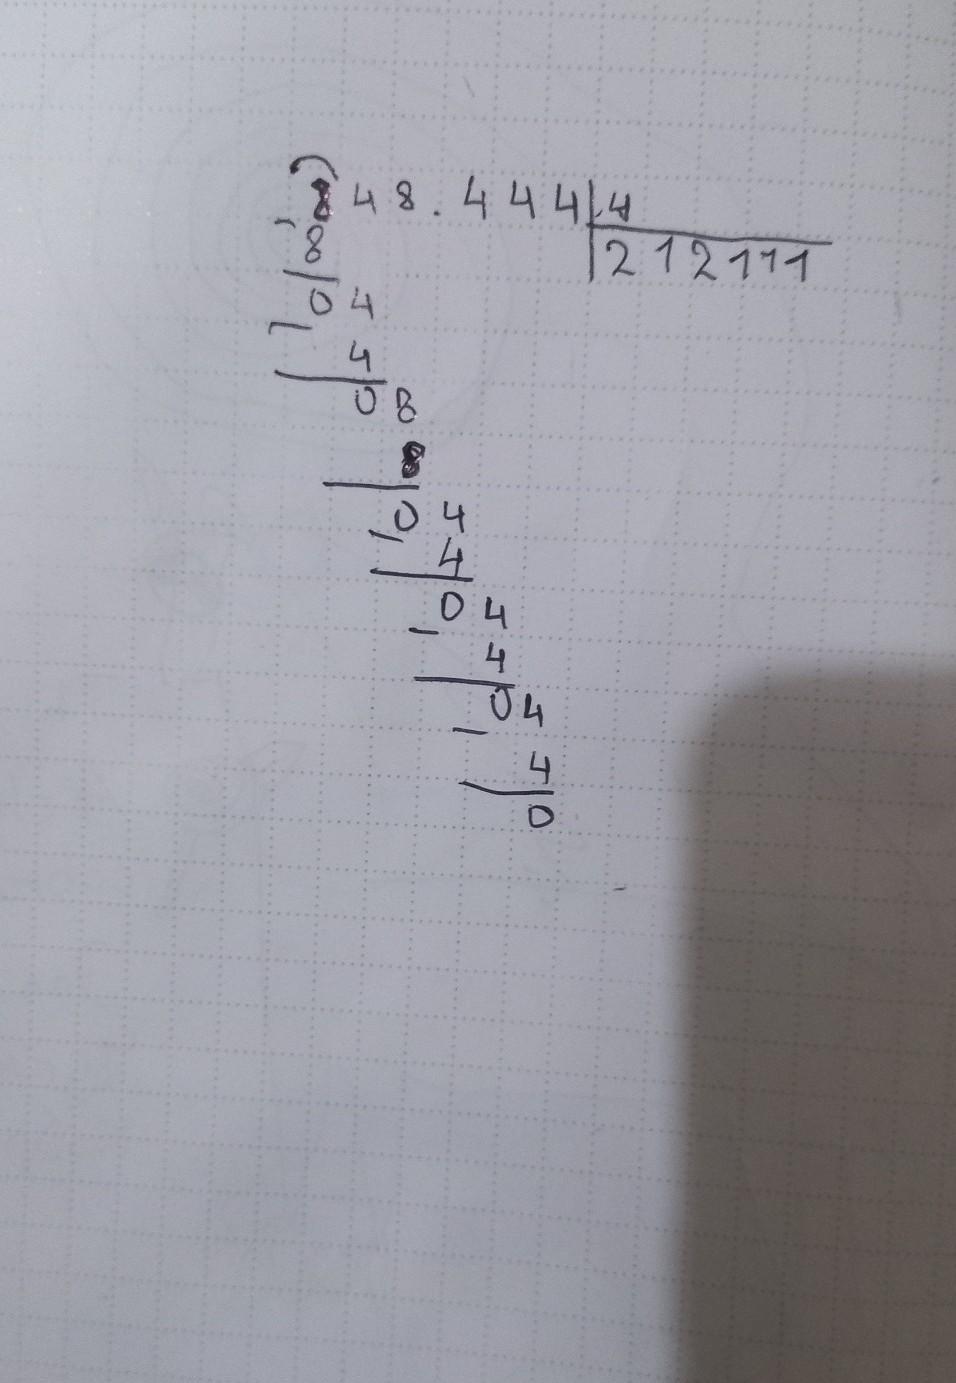 848.444 4
8 212111
04
4
08
8
04
4
04
4
04
4
0